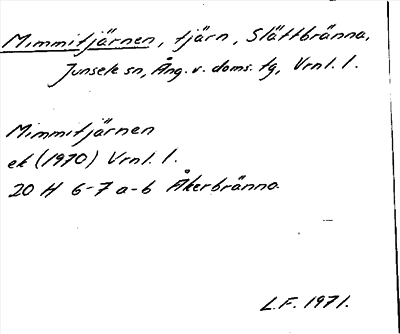 Mimmitjärnen, tjärn, Slättbränna,
Junsele sn, Ång. v. doms. tg, Vrnl. l.
Mimmitjärnen
ek (1970) Vrnl. l.
20 H 6-7 a-b Åkerbränna.
L.F. 1971.